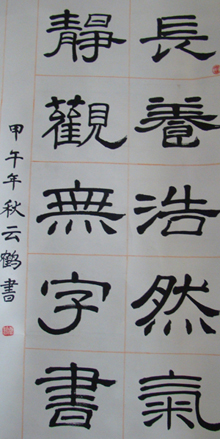 長養浩然氣
靜觀無字書
甲午年秋云鹤書